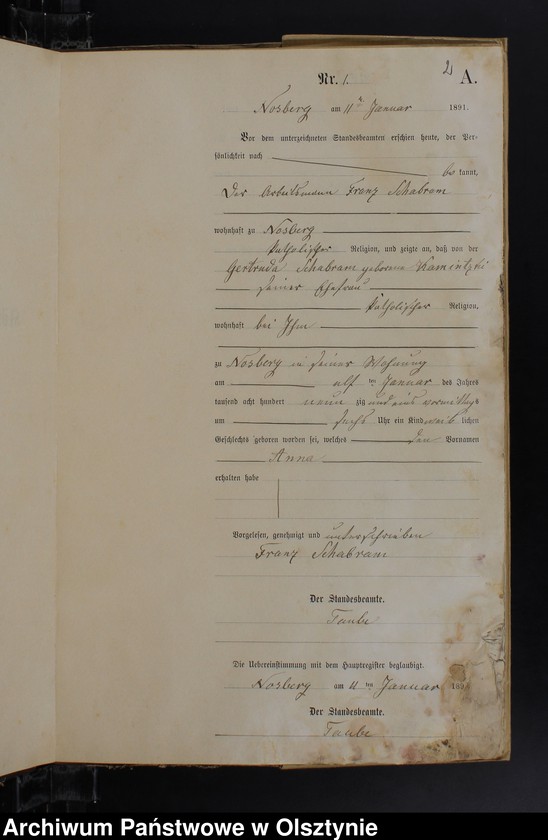 2
Nr. 1. A.
Nosberg am 11ten Januar 1891.
Vor dem unterzeichneten Standesbeamten erschien heute, der Per-
sönlichkeit nach
be kannt,
Der Arbeitsmann Franz Schabram
wohnhaft zu Nosberg
katholischer Religion, und zeigte an, daß von der
Gertruda Schabram geborene Kamintzki
seiner Ehefrau
katholischer Religion,
wohnhaft bei Ihm
zu Nosberg in seiner Wohnung
am elf ten Januar des Jahres
tausend acht hundert neun zig und eins vormittags
um sechs Uhr ein Kind weib lichen
Geschlechts geboren worden sei, welches den Vornamen
Anna
erhalten habe
Vorgelesen, genehmigt und unterschrieben
Franz Schabram
Der Standesbeamte.
Taube
Die Uebereinstimmung mit dem Hauptregister beglaubigt.
Nosberg am 11 ten Januar 189
Der Standesbeamte.
Taube
Archiwum Państwowe w Olsztynie